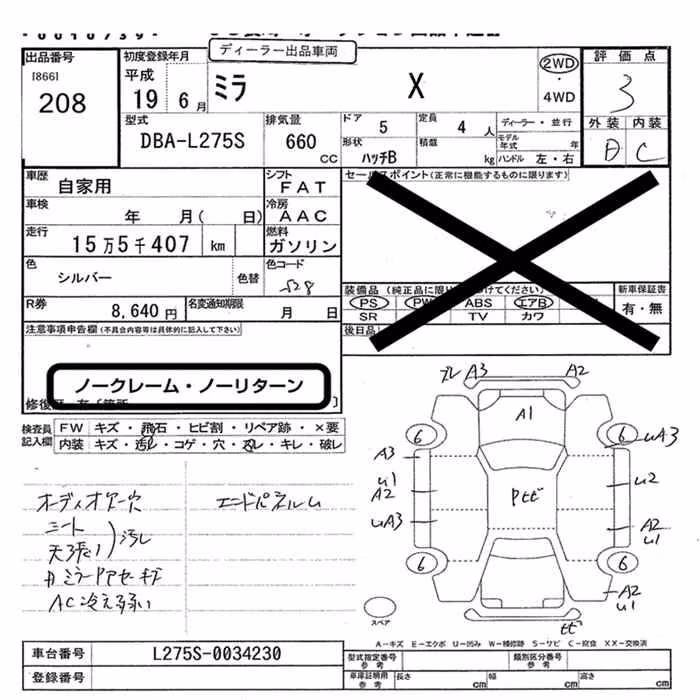 ディーラー出品車両
出品番号
[866]
208
初度登録年月
平成
19 6月
ミラ X
2WD
・
4WD
評価点
3
外装 内装
D C
型式
DBA-L275S
排気量
660
CC
ドア 5
定員 4 人
ディーラー・並行
モデル年式 年
形状 ハッチB
積載 kg
ハンドル 左・右
車歴
自家用
シフト
FAT
セールスポイント(正常に機能するものに限ります)
車検
年 月( 日)
冷房
AAC
走行
15万5千407 km
燃料
ガソリン
色
シルバー
色替
色コード
S28
装備品 (純正品に限り けてください)
PS PW ABS エアB
SR TV カワ
新車保証書
有・無
後日品
R券
8,640円
名変通知期限
月 日
注意事項申告欄(不具合内容等は具体的に記入して下さい)
ノークレーム・ノーリターン
検査員記入欄
FW キズ・飛石・ヒビ割・リペア跡・×要
内装 キズ・汚れ・コゲ・穴・スレ・キレ・破レ
オーディオケース穴
シート
天張り
汚れ
AC冷え弱い
エンドパネルム
A3 A2
A1
6 6
A3 uA3
u1
A2 u2
uA3
A2
u1
6 6
A2
u1
スペア
A-キズ E-エクボ U-凹み W-補修跡 S-サビ C-腐食 XX-交換済
車台番号 L275S-0034230
登録番号
型式指定番号参考
類別区分番号参考
車庫証明用参考
長さ cm
幅 cm
高さ cm